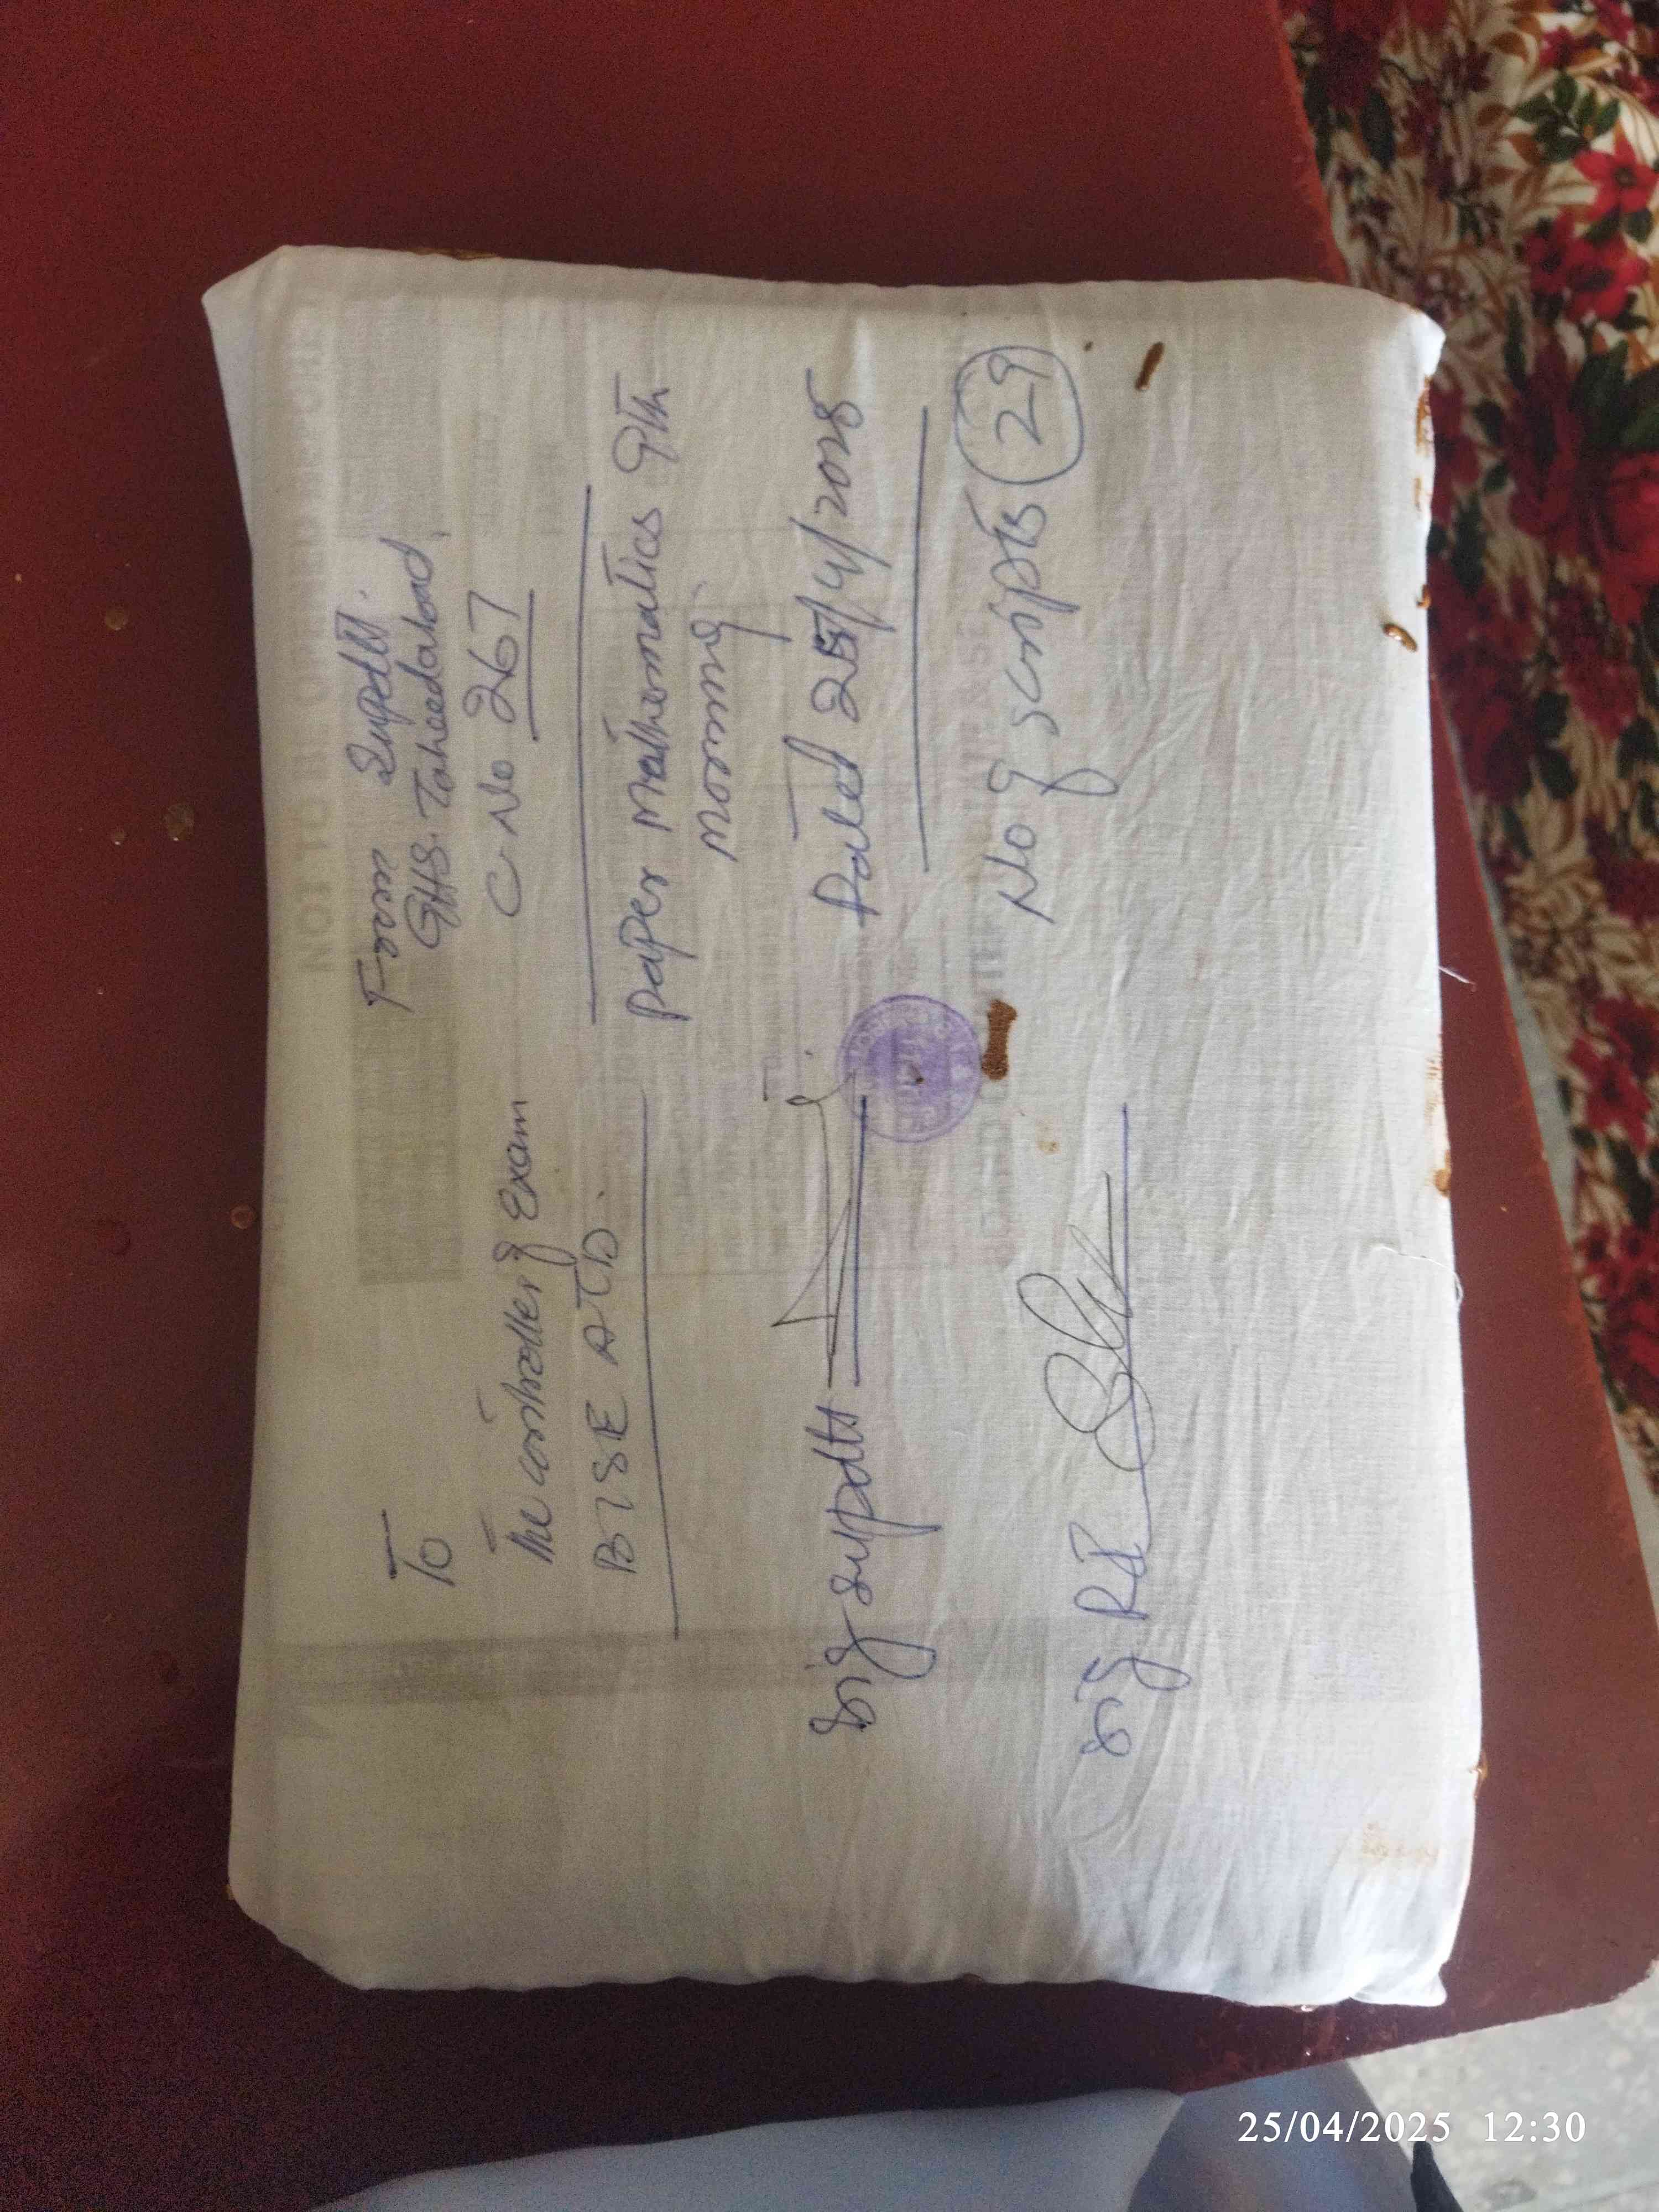 To
The controller of Exam
BISE ATD.
From Supdtt.
GHS. Taheedabad
C-No 267
paper Mathematics 9th
morning
Dated 25/4/2025
No of scripts 29
Sig Supdtt
Sig RI
25/04/2025 12:30